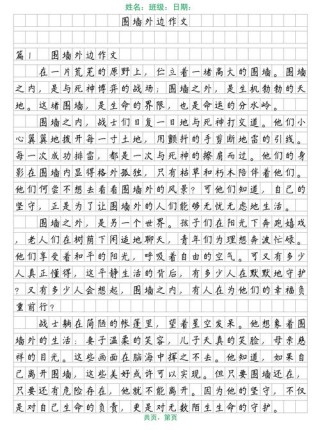 姓名：班级：日期：
围墙外边作文
篇1 围墙外边作文
在一片荒芜的原野上，伫立着一堵高大的围墙。围墙
之内，是与死神博弈的战场；围墙之外，是生机勃勃的天
地。这堵围墙，是生命的界限，也是命运的分水岭。
围墙之内，战士们日复一日地与死神打交道。他们小
心翼翼地拨开每一寸土地，用颤抖的手剪断地雷的引线。
每一次成功排雷，都是一次与死神的擦肩而过。他们的身
影在围墙内显得格外孤独，只有枯草和朽木陪伴着他们。
他们何尝不想去看看围墙外的风景？可他们知道，自己的
坚守，正是为了让围墙外的人们能够无忧无虑地生活。
围墙之外，是另一个世界。孩子们在阳光下奔跑嬉戏
，老人们在树荫下闲适地聊天，青年们为理想奔波忙碌。
他们享受着和平的阳光，呼吸着自由的空气。可又有多少
人真正懂得，这平静生活的背后，有多少人在默默地守护
？又有多少人会想起，围墙之内，有人在为他们的幸福负
重前行？
战士躺在简陋的帐篷里，望着星空发呆。他想象着围
墙外的生活：妻子温柔的笑容，儿子天真的笑脸，母亲慈
祥的目光。这些画面在脑海中挥之不去。他知道，如果自
己离开围墙，这些美好或许可以实现。但只要围墙还在，
只要还有危险存在，他就不能离开。因为他的坚守，不仅
是对自己生命的负责，更是对无数陌生生命的守护。
共页，第页